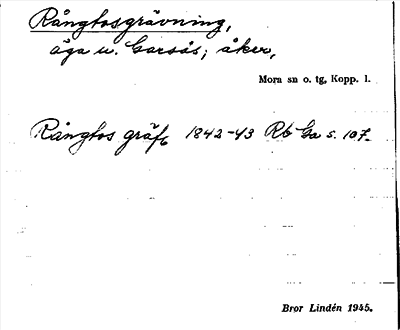 Rångtosgrävning,
äga u. Garsås; åker,
Mora sn o. tg, Kopp. l.
Rångtos gräfg 1842-43 Rb Ga s. 107.
Bror Lindén 1945.